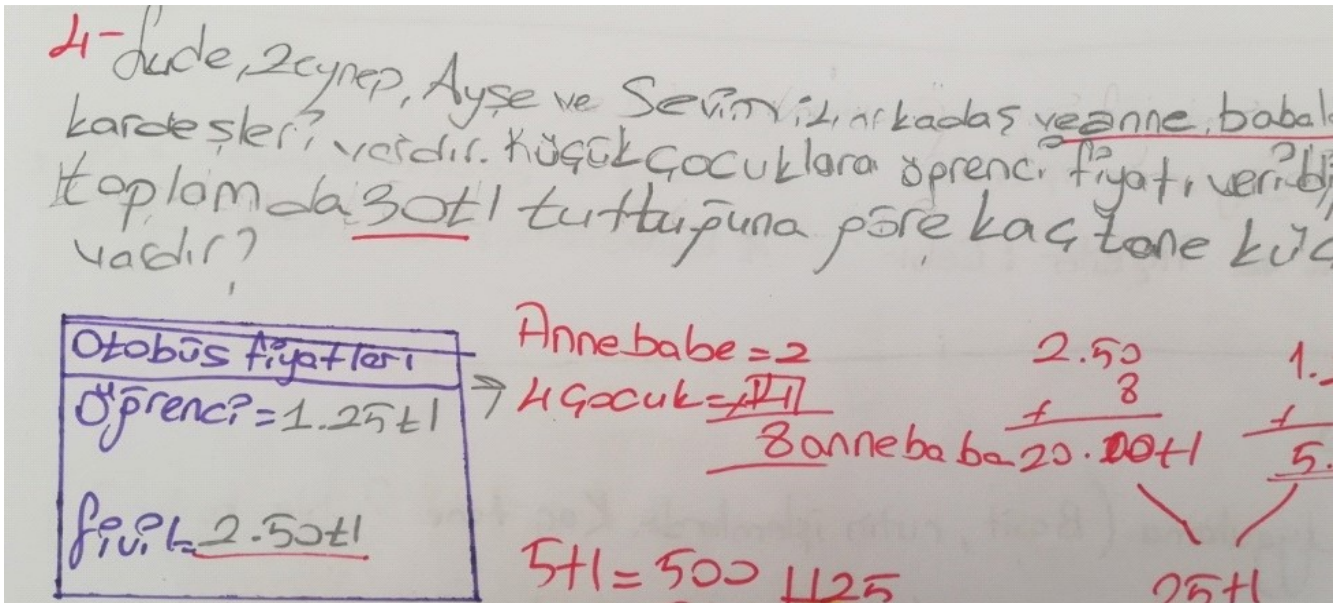 4- Jude, Zeynep, Ayşe ve Sevim iki arkadaş ve anne, babal
kardeşleri vardır. Küçük Çocuklara öğrenci fiyatı veribi
toplamda 30tl tuttuğuna göre kaç tane küç
vardır?
Otobüs fiyatları
Öğrenci = 1.25tl
Sivil = 2.50tl
Annebabe = 2
4 Çocuk = x 4
8 annebaba
2.50
8
+
20.00tl
1.
+
5.
25tl
5tl = 500
125